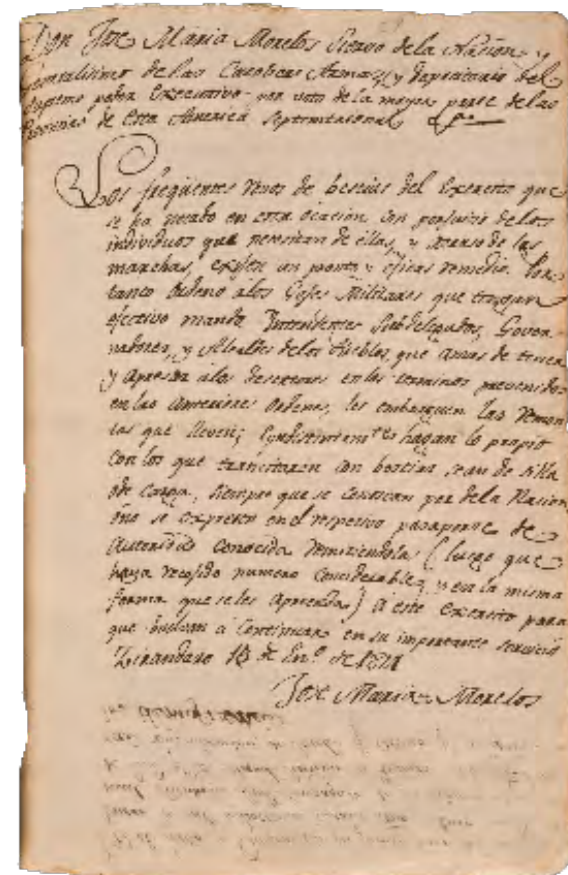 Don Jose Maria Morelos Siervo dela Nacion, y
Generalisimo de las Catolicas Armas, y depocitario del
Supremo poder Executivo por voto de la mayor parte de las
Provincias de esta America Septentrional &
Los freqüentes robos de bestias del Exercito que
se ha notado en esta ocacion con perjuicio de los
individuos que necesitan de ellas, y atraso de las
marchas, exijen un pronto y eficas remedio. Por
tanto Ordeno alos Gefes Militares que tengan
efectivo mando Yntendentes Subdelegados, Gover-
nadores, y Alcaldes delos Pueblos, que amas de tener
y aprendan alos desertores en los terminos prevenidos
en las anteriores Ordenes, les embarguen las remon
tas que lleven; Eyndistintamtes hagan lo propio
con los que trancitaren con bestias, sean de silla
ode carga, siempre que se conoscan por dela Nacion
óno se exprese en el respectivo pasaporte de
Autoridad conocida remitiendolas (luego que
haya recojido numero considerable, y en la misma
forma que seles aprendan) a este exercito para
que buelvan á continuar en su importante servicio
Zirandaro 18 de En.º de
Jose Maria Morelos